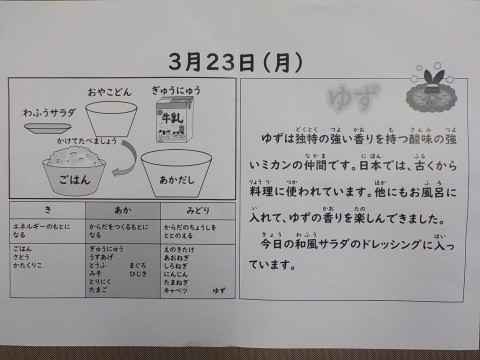 3月23日(月)
おやこどん
ぎゅうにゅう
わふうサラダ
牛乳
かけてたべましょう
ごはん
あかだし
き
あか
みどり
エネルギーのもとに
なる
からだをつくるもとに
なる
からだのちょうしを
ととのえる
ごはん
さとう
かたくりこ
ぎゅうにゅう
うすあげ
とうふ まぐろ
みそ ひじき
とりにく
たまご
えのきたけ
あおねぎ
しろねぎ
にんじん
たまねぎ
キャベツ ゆず
ゆず
どくとく つよ かお も さんみ つよ
ゆずは独特の強い香りを持つ酸味の強
なかま にほん ふる
いミカンの仲間です。日本では、古くから
りょうり つか ほか ふろ
料理に使われています。他にもお風呂に
い かお たの
入れて、ゆずの香りを楽しんできました。
きょう わふう はい
今日の和風サラダのドレッシングに入っ
ています。